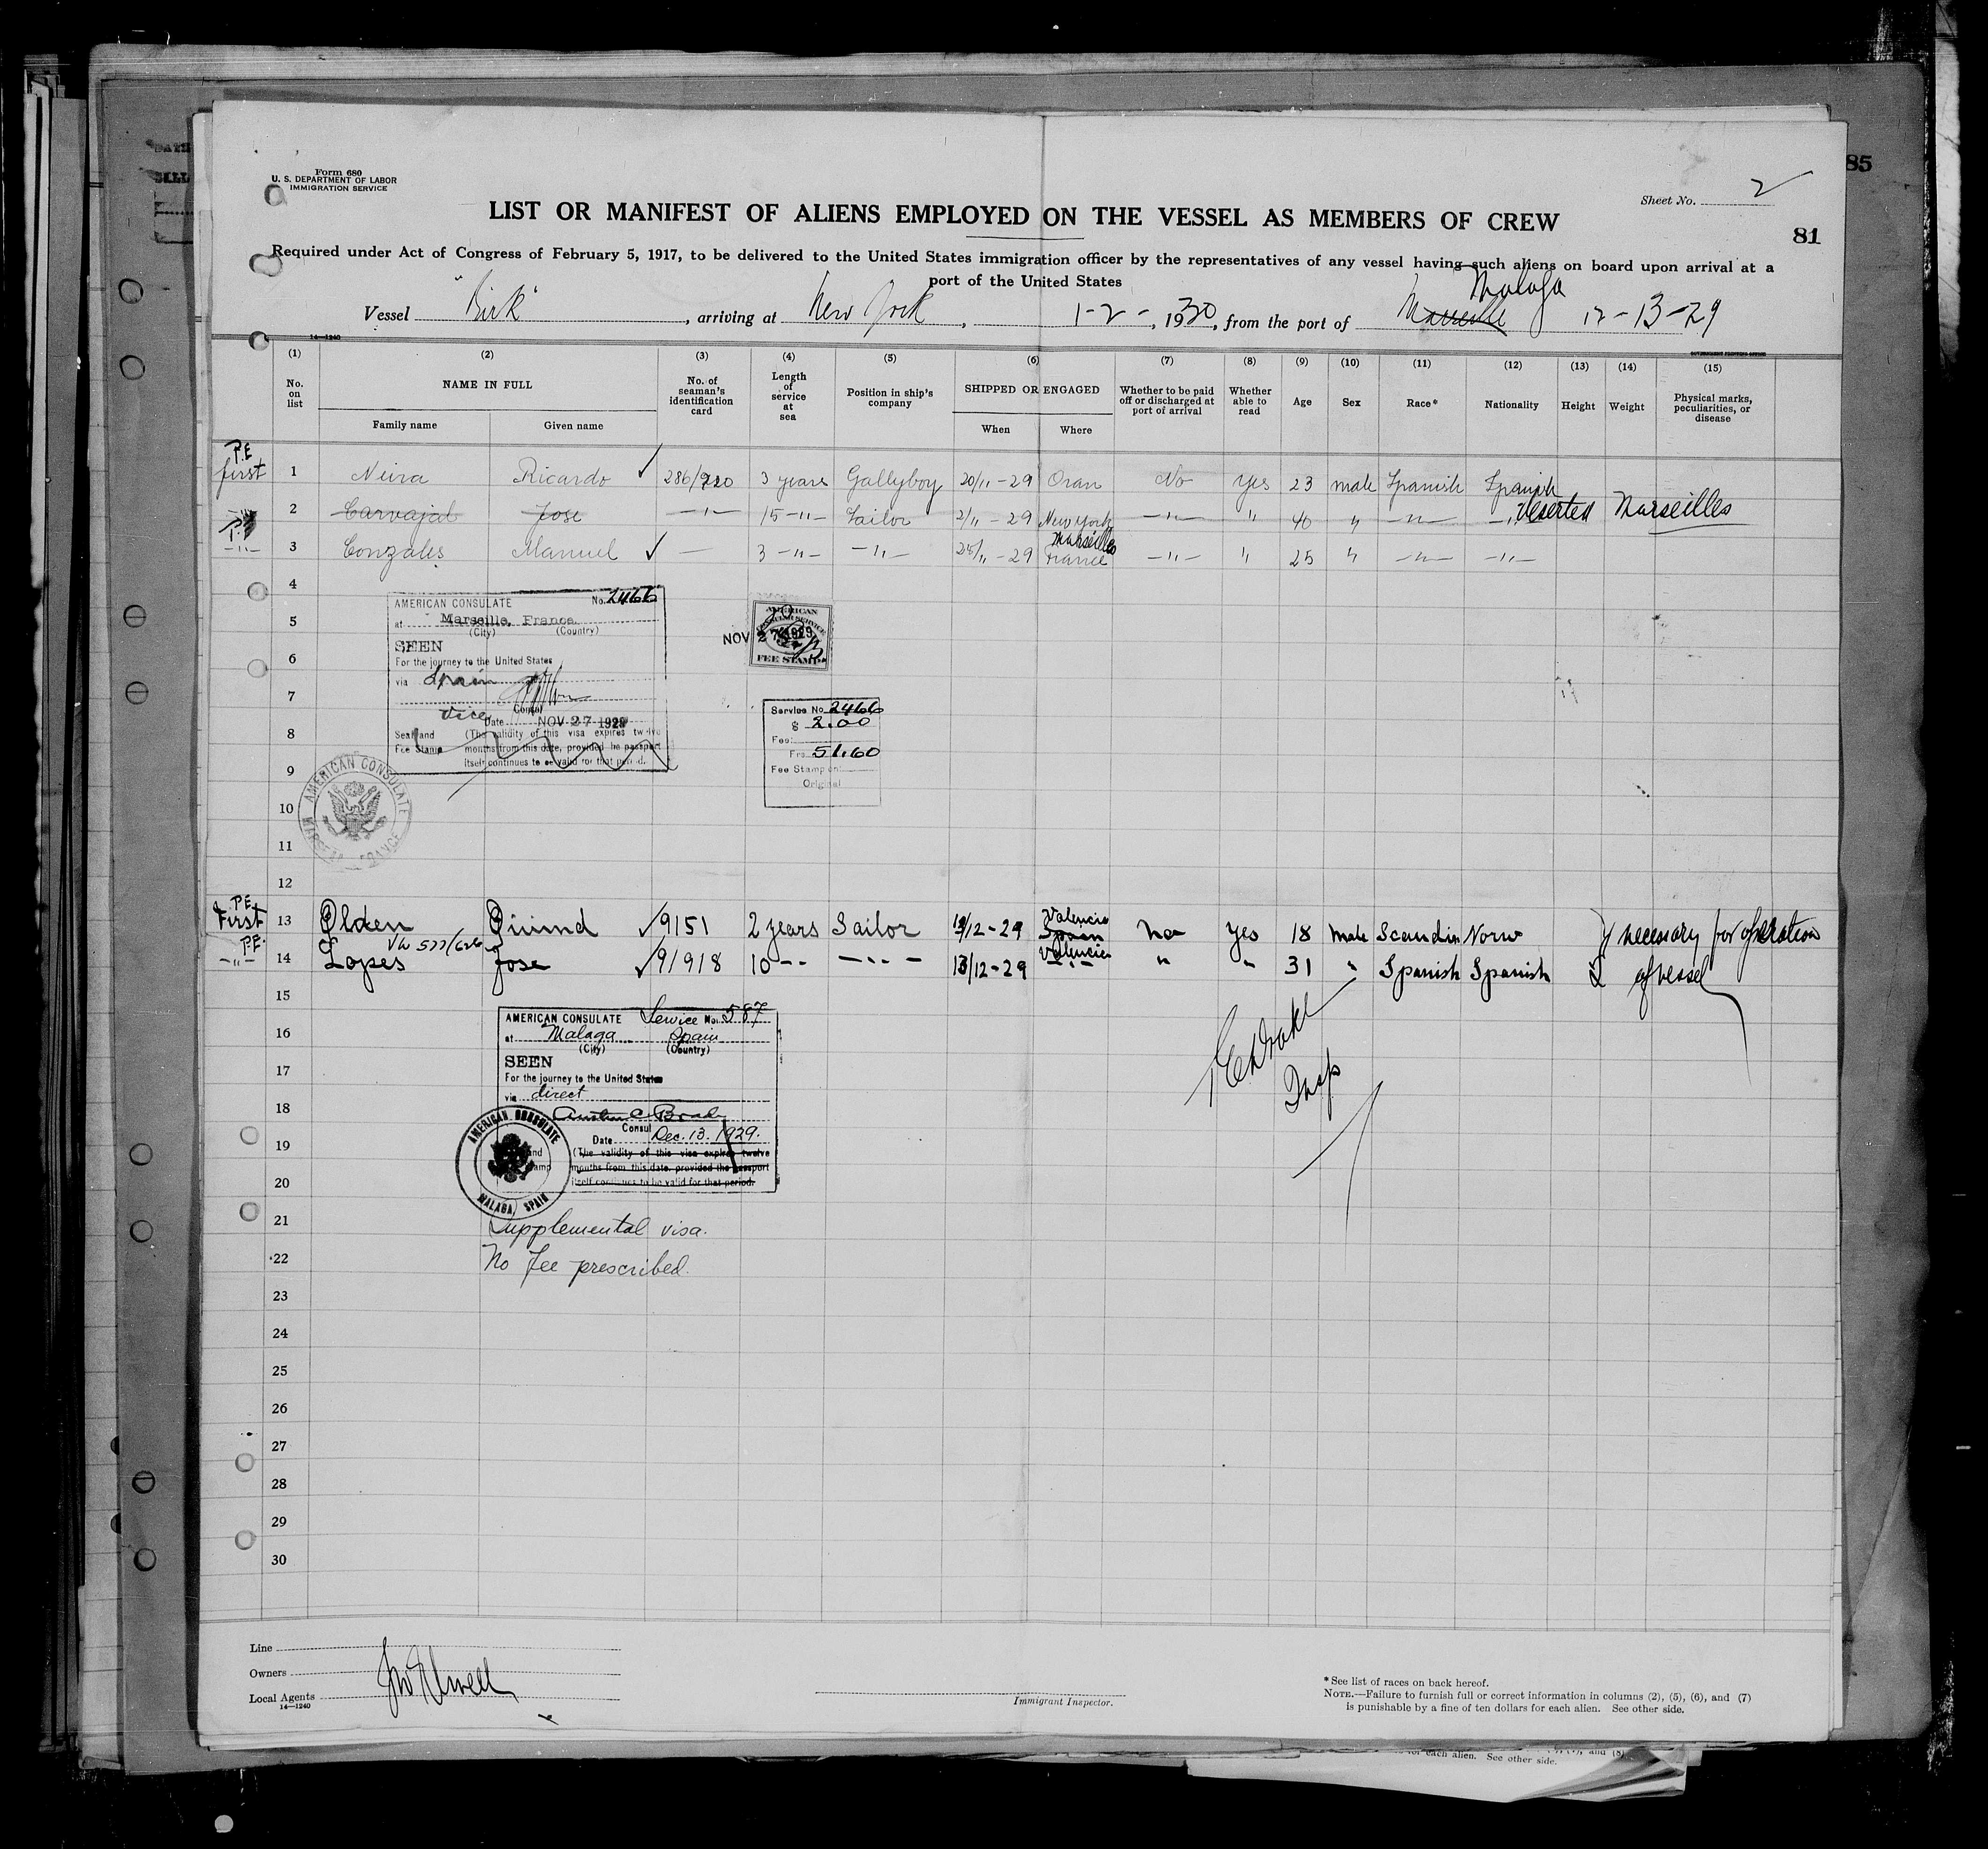 85
Form 680
U. S. DEPARTMENT OF LABOR
IMMIGRATION SERVICE
Sheet No. 2
LIST OR MANIFEST OF ALIENS EMPLOYED ON THE VESSEL AS MEMBERS OF CREW
81
Required under Act of Congress of February 5, 1917, to be delivered to the United States immigration officer by the representatives of any vessel having such aliens on board upon arrival at a
port of the United States
Malaga
Vessel "Birk", arriving at New York, 1-2-, 1930, from the port of Marseille 12-13-29
14—1240
GOVERNMENT PRINTING OFFICE
(1) (2) (3) (4) (5) (6) (7) (8) (9) (10) (11) (12) (13) (14) (15)
No. on list NAME IN FULL No. of seaman's identification card Length of service at sea Position in ship's company SHIPPED OR ENGAGED Whether to be paid off or discharged at port of arrival Whether able to read Age Sex Race* Nationality Height Weight Physical marks, peculiarities, or disease
Family name Given name When Where
P.E.
first 1 Neira Ricardo ✓ 286/920 3 years Gallyboy 20/11-29 Oran No Yes 23 male Spanish Spanish
2 Carvajal Jose —"— 15 —"— Sailor 2/11-29 New York —"— " 40 " —"— —"— deserted Marseilles
P.E.
—"— 3 Gonzales Manuel ✓ — 3 —"— —"— 25/11-29 Marseilles France —"— " 25 " —"— —"—
4
5
6
7
8
9
10
11
12
AMERICAN CONSULATE No. 2466
at Marseille, France.
(City) (Country)
SEEN
For the journey to the United States
via Spain
Vice Consul
Date NOV 27 1929
Seal and Fee Stamp (The validity of this visa expires twelve
months from this date, provided he passport
itself continues to be valid for that period.
AMERICAN CONSULATE
MARSEILLE FRANCE
NOV 27 1929
AMERICAN
CONSULAR SERVICE
FEE STAMP
Service No. 2466
$ 2.00
Fee:
Frs. 51.60
Fee Stamp on
Original
P.E.
First 13 Olden Øivind ✓ 9151 2 years Sailor 12/12-29 Valencia Spain No Yes 18 Male Scandin Norw } necessary for operation
P.E.
—"— 14 Lopes Jose ✓ 91918 10 -- —"— 13/12-29 Valencia —"— " " 31 " Spanish Spanish of vessel
15
16
17
18
19
20
21
22
23
24
25
26
27
28
29
30
AMERICAN CONSULATE Service No. 587
at Malaga Spain
(City) (Country)
SEEN
For the journey to the United States
via direct
Austin C. Brady
Consul
Date Dec. 13. 1929.
(The validity of this visa expires twelve
months from this date, provided the passport
itself continues to be valid for that period.
AMERICAN CONSULATE
MALAGA, SPAIN
Supplemental visa.
No fee prescribed.
Insp
Line
Owners
Local Agents
14—1240
Immigrant Inspector.
* See list of races on back hereof.
NOTE.—Failure to furnish full or correct information in columns (2), (5), (6), and (7)
is punishable by a fine of ten dollars for each alien. See other side.
for each alien. See other side.